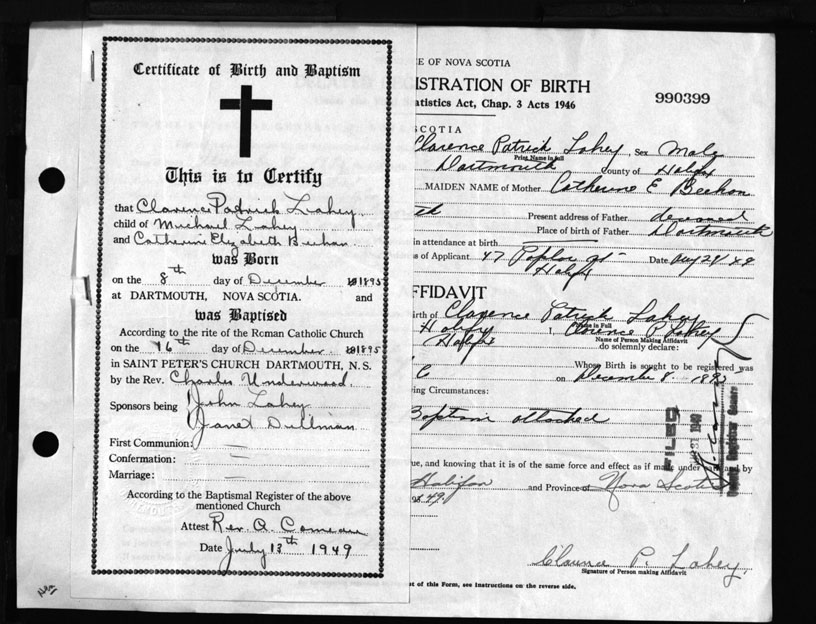 Certificate of Birth and Baptism
This is to Certify
that Clarence Patrick Lahey
child of Michael Lahey
and Catherine Elizabeth Beehan
was Born
on the 8th day of December 1895
at DARTMOUTH, NOVA SCOTIA. and
was Baptised
According to the rite of the Roman Catholic Church
on the 16th day of December 1895
in SAINT PETER'S CHURCH DARTMOUTH, N.S.
by the Rev. Charles Underwood.
Sponsors being John Lahey
Janet Dullman
First Communion:
Confermation:
Marriage:
According to the Baptismal Register of the above
mentioned Church
Attest Rev. A. Comeau
Date July 13th 1949
CE OF NOVA SCOTIA
ISTRATION OF BIRTH
tatistics Act, Chap. 3 Acts 1946
990399
SCOTIA
Clarence Patrick Lahey Sex Male
Print Name in full
Dartmouth County of Halifax
MAIDEN NAME of Mother Catherine E Beehan
th Present address of Father deceased
Place of birth of Father Dartmouth
in attendance at birth
s of Applicant 47 Date
Halifx
FFIDAVIT
irth of Clarence Patrick Lahey
Print Name in Full
Halifx I, Clarence P. Lahey
Name of Person Making Affidavit
Halifx do solemnly declare:
Whose Birth is sought to be registered was
on December 8 1895
ing Circumstances:
Baptism attached
FILED
ue, and knowing that it is of the same force and effect as if made under oath and by
Halifax and Province of Nova Scotia
1949.
Clarence P. Lahey
Signature of Person making Affidavit
t of this Form, see Instructions on the reverse side.